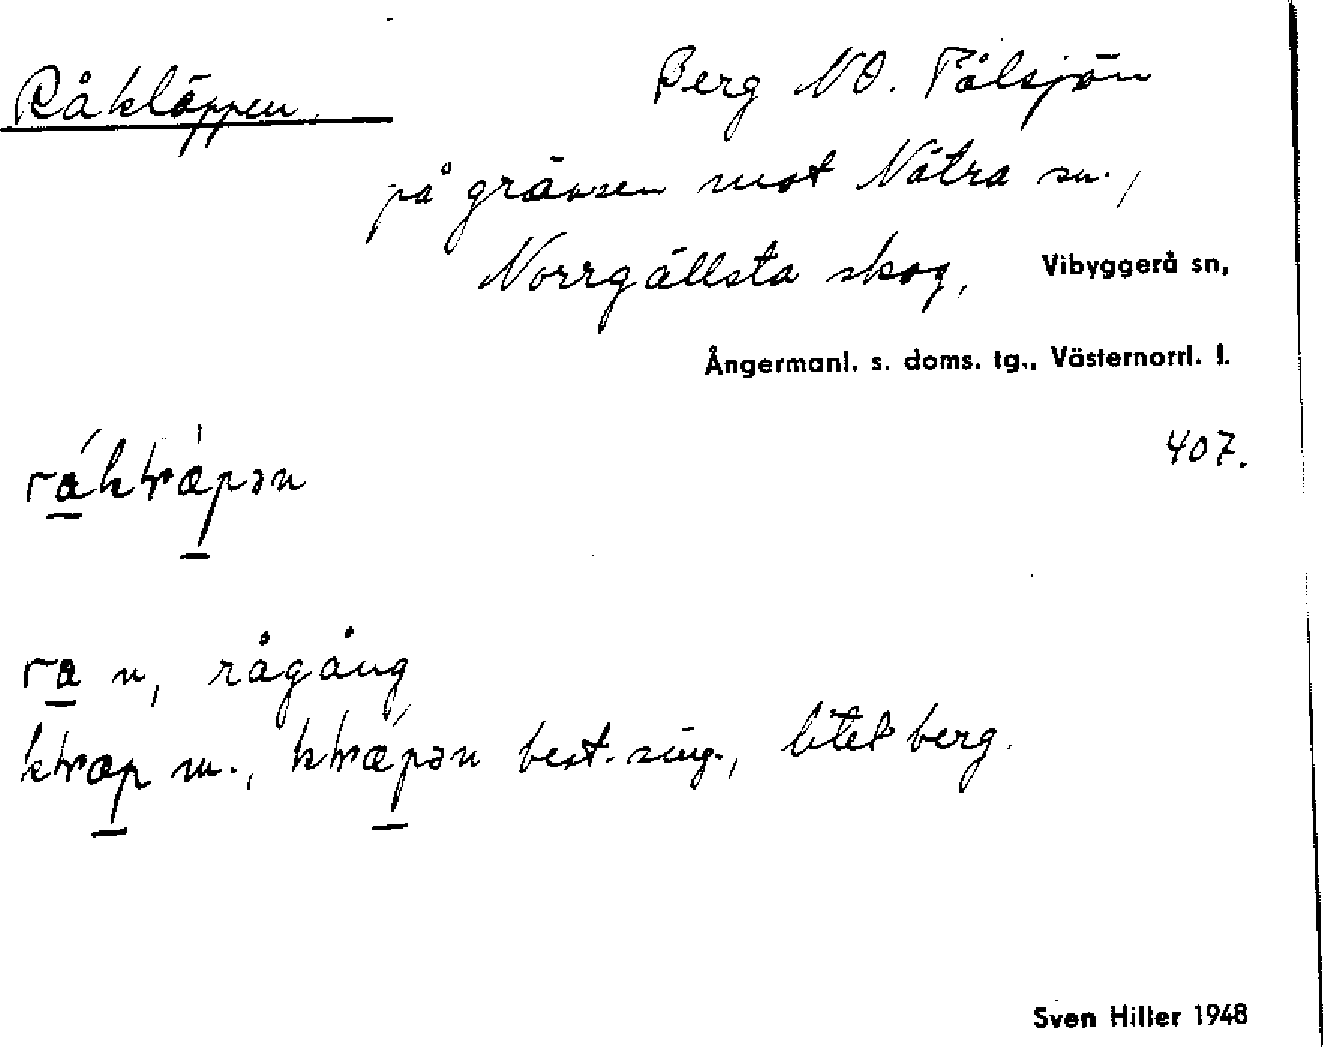 Råkläppen. Berg NO. Pålsjön
på gränsen mot Nätra sn.,
Norrgällsta skog, Vibyggerå sn,
Ångermanl. s. doms. tg., Västernorrl. l.
407.
n, rågång
m., best. sing., litet berg.
Sven Hiller 1948